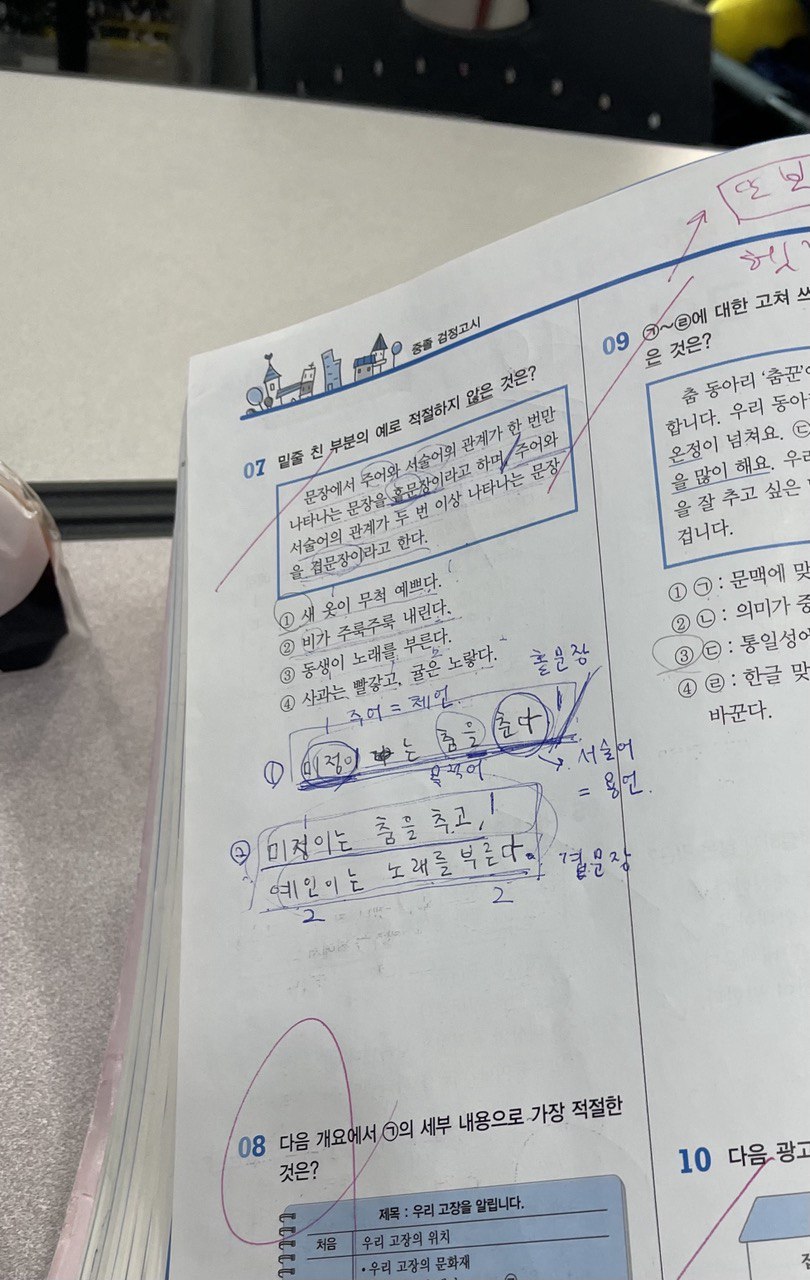 중졸 검정고시
07 밑줄 친 부분의 예로 적절하지 않은 것은?
문장에서 주어와 서술어의 관계가 한 번만
나타나는 문장을 홑문장이라고 하며, 주어와
서술어의 관계가 두 번 이상 나타나는 문장
을 겹문장이라고 한다.
① 새 옷이 무척 예쁘다.
② 비가 주룩주룩 내린다.
③ 동생이 노래를 부른다.
④ 사과는 빨갛고, 귤은 노랗다.
홑문장
주어 = 체언
① 미정이는 춤을 춘다
목적어
서술어
= 용언.
② 미정이는 춤을 추고,
예인이는 노래를 부른다. 겹문장
2 2
08 다음 개요에서 ㉠의 세부 내용으로 가장 적절한
것은?
제목 : 우리 고장을 알립니다.
처음 우리 고장의 위치
• 우리 고장의 문화재
또 보
09 ㉠~㉣에 대한 고쳐 쓰
은 것은?
춤 동아리 '춤꾼'
합니다. 우리 동아
온정이 넘쳐요. ㉢
을 많이 해요. 우리
을 잘 추고 싶은
겁니다.
① ㉠ : 문맥에 맞
② ㉡ : 의미가 중
③ ㉢ : 통일성
④ ㉣ : 한글 맞
바꾼다.
10 다음 광고